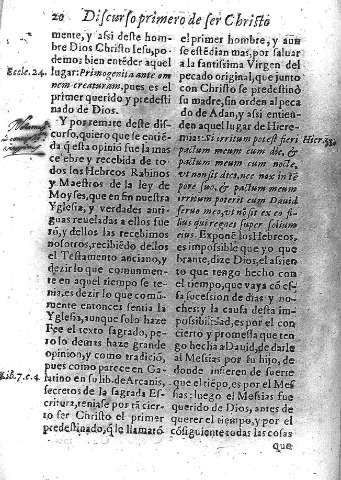 20 Discurso primero de ser Christo
mente, y assi deste hom-
bre Dios Christo Iesu, po-
demos bien entẽder aquel
Eccle. 24. lugar: Primogenita ante om
nem creaturam, pues es el
primer querido y predesti
nado de Dios.
Y por remate deste dis-
curso, quiero que se entiẽ-
da q̃ esta opinió fue la mas
celebre y recebida de to-
dos los Hebreos Rabinos
y Maestros de la ley de
Moyses, que en fin nuestra
Yglesia, y verdades anti-
guas reueladas a ellos fue
ró, y dellos las recebimos
nosotros, recibiẽdo dellos
el Testamento anciano, y
dezir lo que comunmen-
te en aquel tiempo se te-
nia, es dezir lo que comú-
mente entonces sentia la
Yglesia, aunque solo haze
Fee el texto sagrado, pe-
ro lo demas haze grande
opinion, y como tradició,
pues como parece en Ga-
Lib. 7. c. 4. latino en su lib. de Arcanis,
secretos de la sagrada Es-
critura, teniase por tã cier-
to ser Christo el primer
predestinado, q̃ le llamaró
el primer hombre, y aun
se estẽdian mas, por saluar
a la santissima Virgen del
pecado original, que junto
con Christo se predestinó
su madre, sin orden al peca
do de Adan, y assi entien-
den aquel lugar de Hiere-
mias: Si irritum potest fieri Hier. 33.
pactum meum cum die, &
pactum meum cum nocte,
vt non sit dies, nec nox in tẽ
pore suo, & pactum meum
irritum poterit cum Dauid
seruo meo, vt nõ sit ex eo fi-
lius qui regnet super solium
eius. Exponẽ los Hebreos,
es impossible que yo que
brante, dize Dios, el assien
to que tengo hecho con
el tiempo, que vaya có es-
sa sucession de dias y no-
ches: y la causa desta im-
possibilidad, es por el con
cierto y promessa que ten
go hecha a Dauid, de darle
al Messias por su hijo, de
donde infieren de suerte
que el tiẽpo, es por el Mes
sias: luego el Messias fue
querido de Dios, antes de
querer el tiempo, y por el
cósiguiente todas las cosas
que